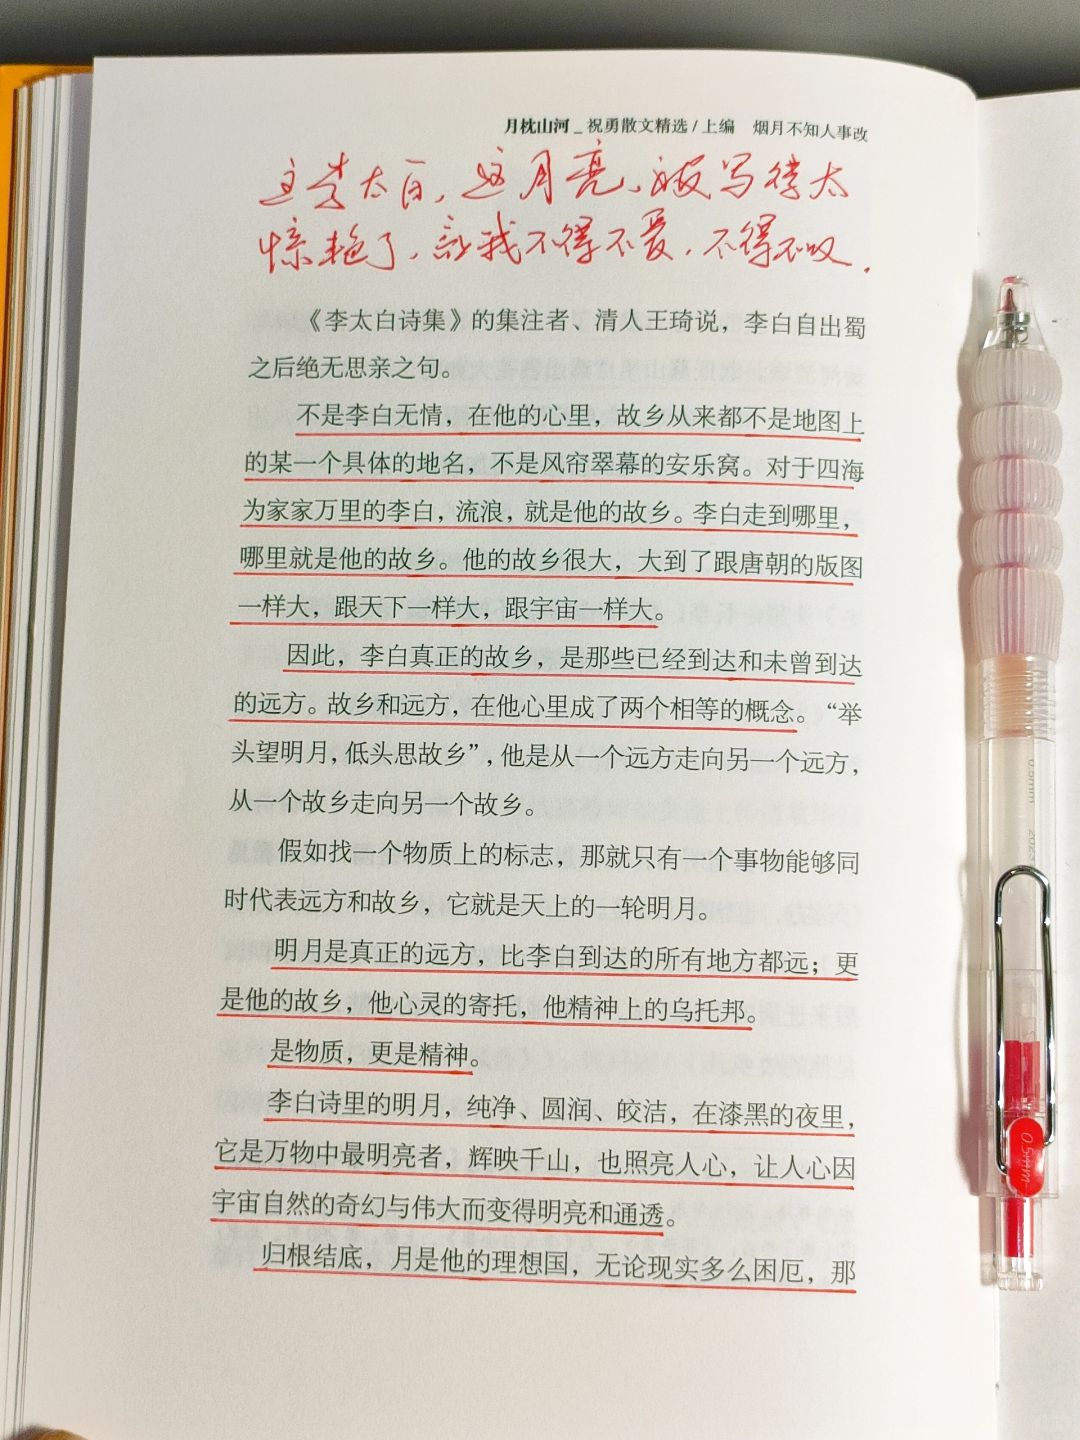 月枕山河_祝勇散文精选/上编 烟月不知人事改
这李太白，这月亮、被写得太
惊艳了，让我不得不爱，不得不叹．
《李太白诗集》的集注者、清人王琦说，李白自出蜀
之后绝无思亲之句。
不是李白无情，在他的心里，故乡从来都不是地图上
的某一个具体的地名，不是风帘翠幕的安乐窝。对于四海
为家家万里的李白，流浪，就是他的故乡。李白走到哪里，
哪里就是他的故乡。他的故乡很大，大到了跟唐朝的版图
一样大，跟天下一样大，跟宇宙一样大。
因此，李白真正的故乡，是那些已经到达和未曾到达
的远方。故乡和远方，在他心里成了两个相等的概念。“举
头望明月，低头思故乡”，他是从一个远方走向另一个远方，
从一个故乡走向另一个故乡。
假如找一个物质上的标志，那就只有一个事物能够同
时代表远方和故乡，它就是天上的一轮明月。
明月是真正的远方，比李白到达的所有地方都远；更
是他的故乡，他心灵的寄托，他精神上的乌托邦。
是物质，更是精神。
李白诗里的明月，纯净、圆润、皎洁，在漆黑的夜里，
它是万物中最明亮者，辉映千山，也照亮人心，让人心因
宇宙自然的奇幻与伟大而变得明亮和通透。
归根结底，月是他的理想国，无论现实多么困厄，那
0.5mm
0.5mm